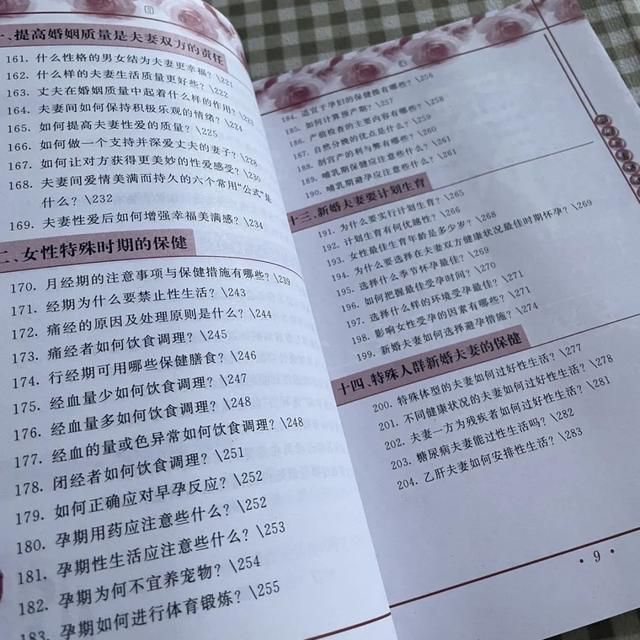 一、提高婚姻质量是夫妻双方的责任
161. 什么性格的男女结为夫妻更幸福？\221
162. 什么样的夫妻生活质量更好些？\222
163. 丈夫在婚姻质量中起着什么样的作用？\223
164. 夫妻间如何保持积极乐观的情绪？\224
165. 如何提高夫妻性爱的质量？\225
166. 如何做一个支持并深爱丈夫的妻子？\228
167. 如何让对方获得更美妙的性爱感受？\230
168. 夫妻间爱情美满而持久的六个常用“公式”是
什么？\232
169. 夫妻性爱后如何增强幸福美满感？\234
二、女性特殊时期的保健
170. 月经期的注意事项与保健措施有哪些？\239
171. 经期为什么要禁止性生活？\243
172. 痛经的原因及处理原则是什么？\244
173. 痛经者如何饮食调理？\245
174. 行经期可用哪些保健膳食？\246
175. 经血量少如何饮食调理？\247
176. 经血量多如何饮食调理？\248
177. 经血的量或色异常如何饮食调理？\248
178. 闭经者如何饮食调理？\251
179. 如何正确应对早孕反应？\252
180. 孕期用药应注意些什么？\252
181. 孕期性生活应注意些什么？\253
182. 孕期为何不宜养宠物？\254
183. 孕期如何进行体育锻炼？\255
184. 适宜于孕妇的保健操有哪些？\256
185. 如何计算预产期？\257
186. 产前检查的主要内容有哪些？\258
187. 自然分娩的优点是什么？\259
188. 剖宫产的利与弊有哪些？\260
189. 哺乳期保健应注意些什么？\261
190. 哺乳期避孕应注意些什么？\261
十三、新婚夫妻要计划生育
191. 为什么要实行计划生育？\265
192. 计划生育有何优越性？\266
193. 女性最佳生育年龄是多少岁？\268
194. 为什么要选择在夫妻双方健康状况最佳时期怀孕？\269
195. 选择什么季节怀孕最佳？\270
196. 如何把握最佳受孕时间？\271
197. 选择什么样的环境受孕最佳？\271
198. 影响女性受孕的因素有哪些？\271
199. 新婚夫妻如何选择避孕措施？\274
十四、特殊人群新婚夫妻的保健
200. 特殊体型的夫妻如何过好性生活？\277
201. 不同健康状况的夫妻如何过好性生活？\278
202. 夫妻一方为残疾者如何过好性生活？\281
203. 糖尿病夫妻能过性生活吗？\282
204. 乙肝夫妻如何安排性生活？\283
· 9 ·